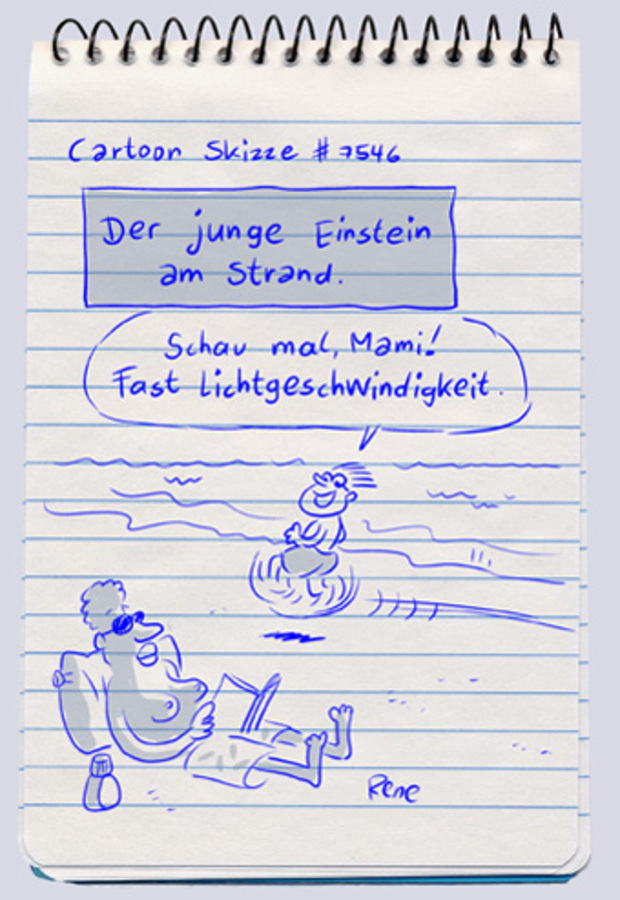 Cartoon Skizze # 7546
Der junge Einstein
am Strand.
Schau mal, Mami!
Fast Lichtgeschwindigkeit.
Rene